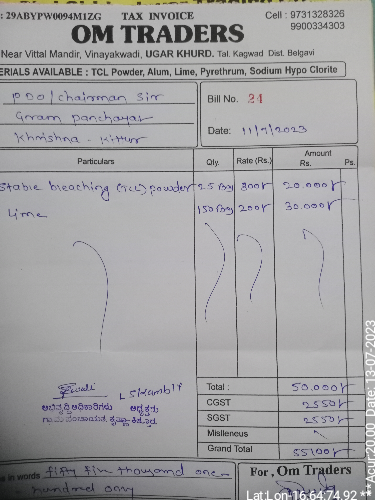 : 29ABYPW0094M1ZG TAX INVOICE Cell : 9731328326
9900334303
OM TRADERS
Near Vittal Mandir, Vinayakwadi, UGAR KHURD. Tal. Kagwad Dist. Belgavi
ERIALS AVAILABLE : TCL Powder, Alum, Lime, Pyrethrum, Sodium Hypo Clorite
PDO/Chairman Sir
Gram panchayat
Khrishna - Kittur
Bill No. 24
Date: 11/7/2023
Particulars Qly. Rate (Rs.) Amount
Rs. Ps.
Stable bleaching (TCL) powder 25 Bag 800/- 20.000/-
Lime 150 Bag 200/- 30.000/-
ಅಭಿವೃದ್ಧಿ ಅಧಿಕಾರಿಗಳು ಅಧ್ಯಕ್ಷರು
ಗ್ರಾಮ ಪಂಚಾಯತ, ಕೃಷ್ಣಾ-ಕಿತ್ತೂರ
Total : 50.000/-
CGST 2550/-
SGST 2550/-
Mislleneus
Grand Total 55100/-
e in words fifty fiv thousand one
hundred only
For, Om Traders
Lat Lon-16.64,74.92 ** Acur 20.00 Date: 13-07-2023